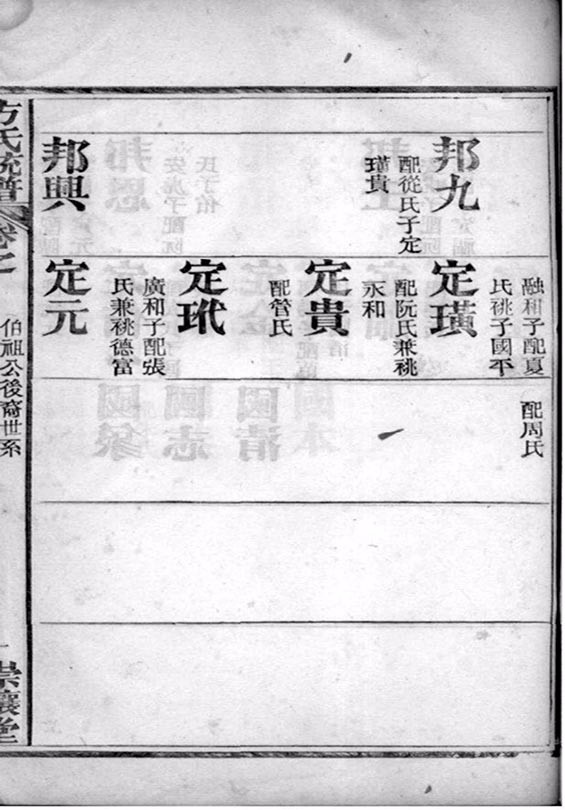 邦九
配從氏子定
璜貴
邦興
融和子配夏
氏祧子國平
定璜
配阮氏兼祧
永和
定貴
配管氏
定玳
廣和子配張
氏兼祧德富
定元
配周氏
方氏統譜
卷之
伯祖公後裔世系
崇讓堂